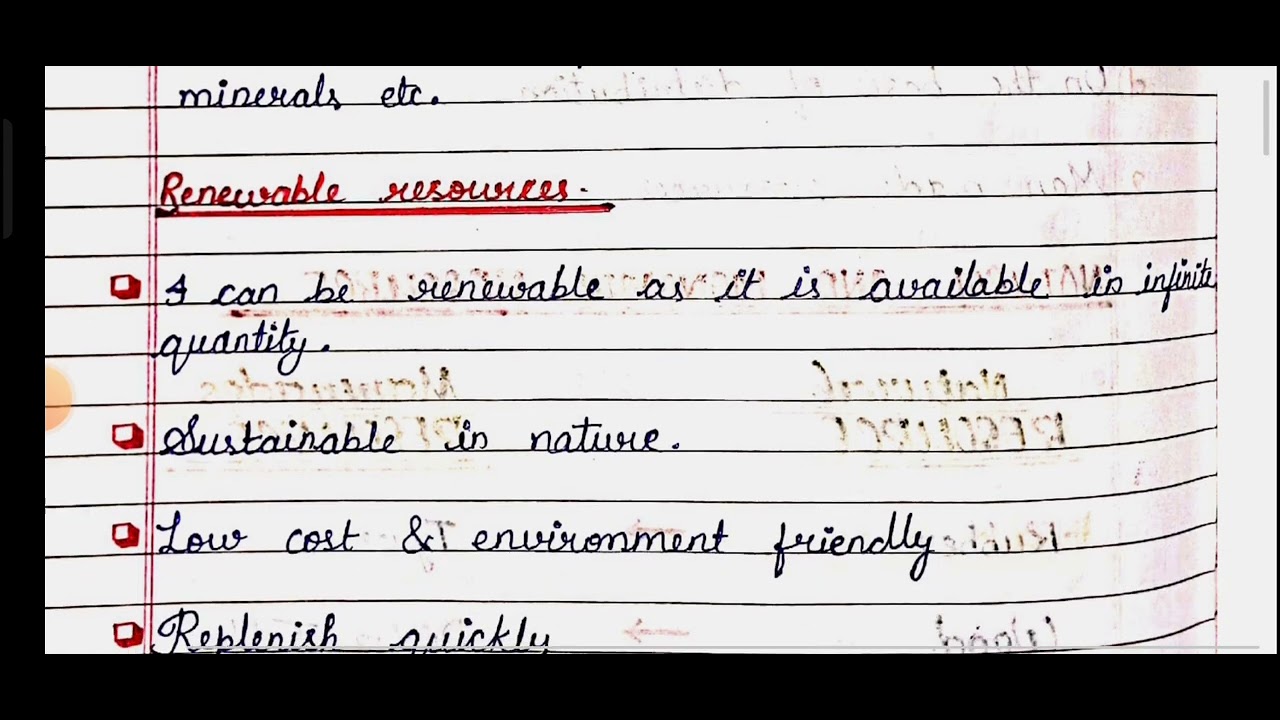 minerals etc.
Renewable resources.
can be renewable as it is available in infinite
quantity.
Sustainable in nature.
Low cost & environment friendly
Replenish quickly